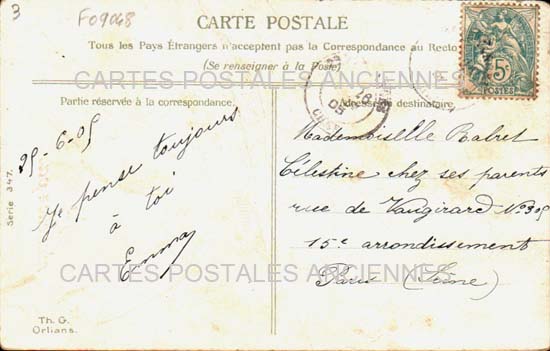 3
F09048
CARTE POSTALE
Tous les Pays Étrangers n'acceptent pas la Correspondance au Recto
(Se renseigner à la Poste)
CARTES POSTALES ANCIENNES
Partie réservée à la correspondance.
Adresse du destinataire.
25-6-05
Je pense toujours
à toi
Emma
Mademoiselle Babret
Célestine chez ses parents
rue de Vaugirard No 305
15e arrondissement
Paris (Seine)
CARTES POSTALES ANCIENNES
Serie 347.
Th. G.
Orlians.
5c
POSTES